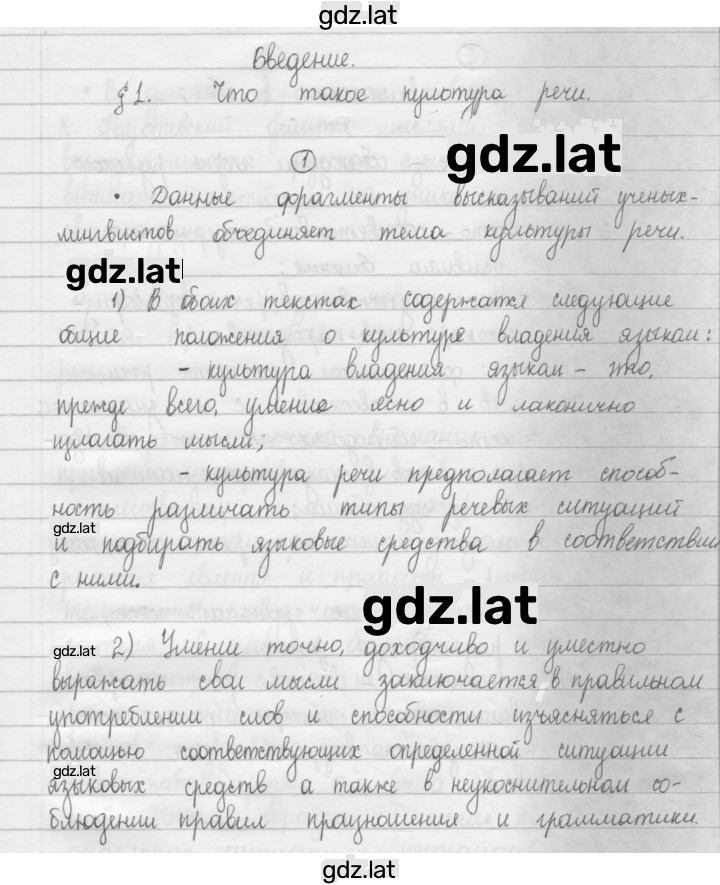 gdz.lat
Введение.
§1. Что такое культура речи.
1
gdz.lat
• Данные фрагменты высказываний ученых-
лингвистов объединяет тема культуры речи.
gdz.lat
1) В обоих текстах содержатся следующие
общие - положения о культуре владения языком:
- культура владения языком - это,
прежде всего, умение ясно и лаконично
излагать мысли,
- культура речи предполагает способ-
ность различать типы речевых ситуаций
gdz.lat
и подбирать языковые средства в соответствии
с ними.
gdz.lat
gdz.lat
2) Умение точно, доходчиво и уместно
выражать свои мысли заключается в правильном
употреблении слов и способности изъясняться с
помощью соответствующих определенной ситуации
gdz.lat
языковых средств а также в неукоснительном со-
блюдении правил произношения и грамматики.
gdz.lat